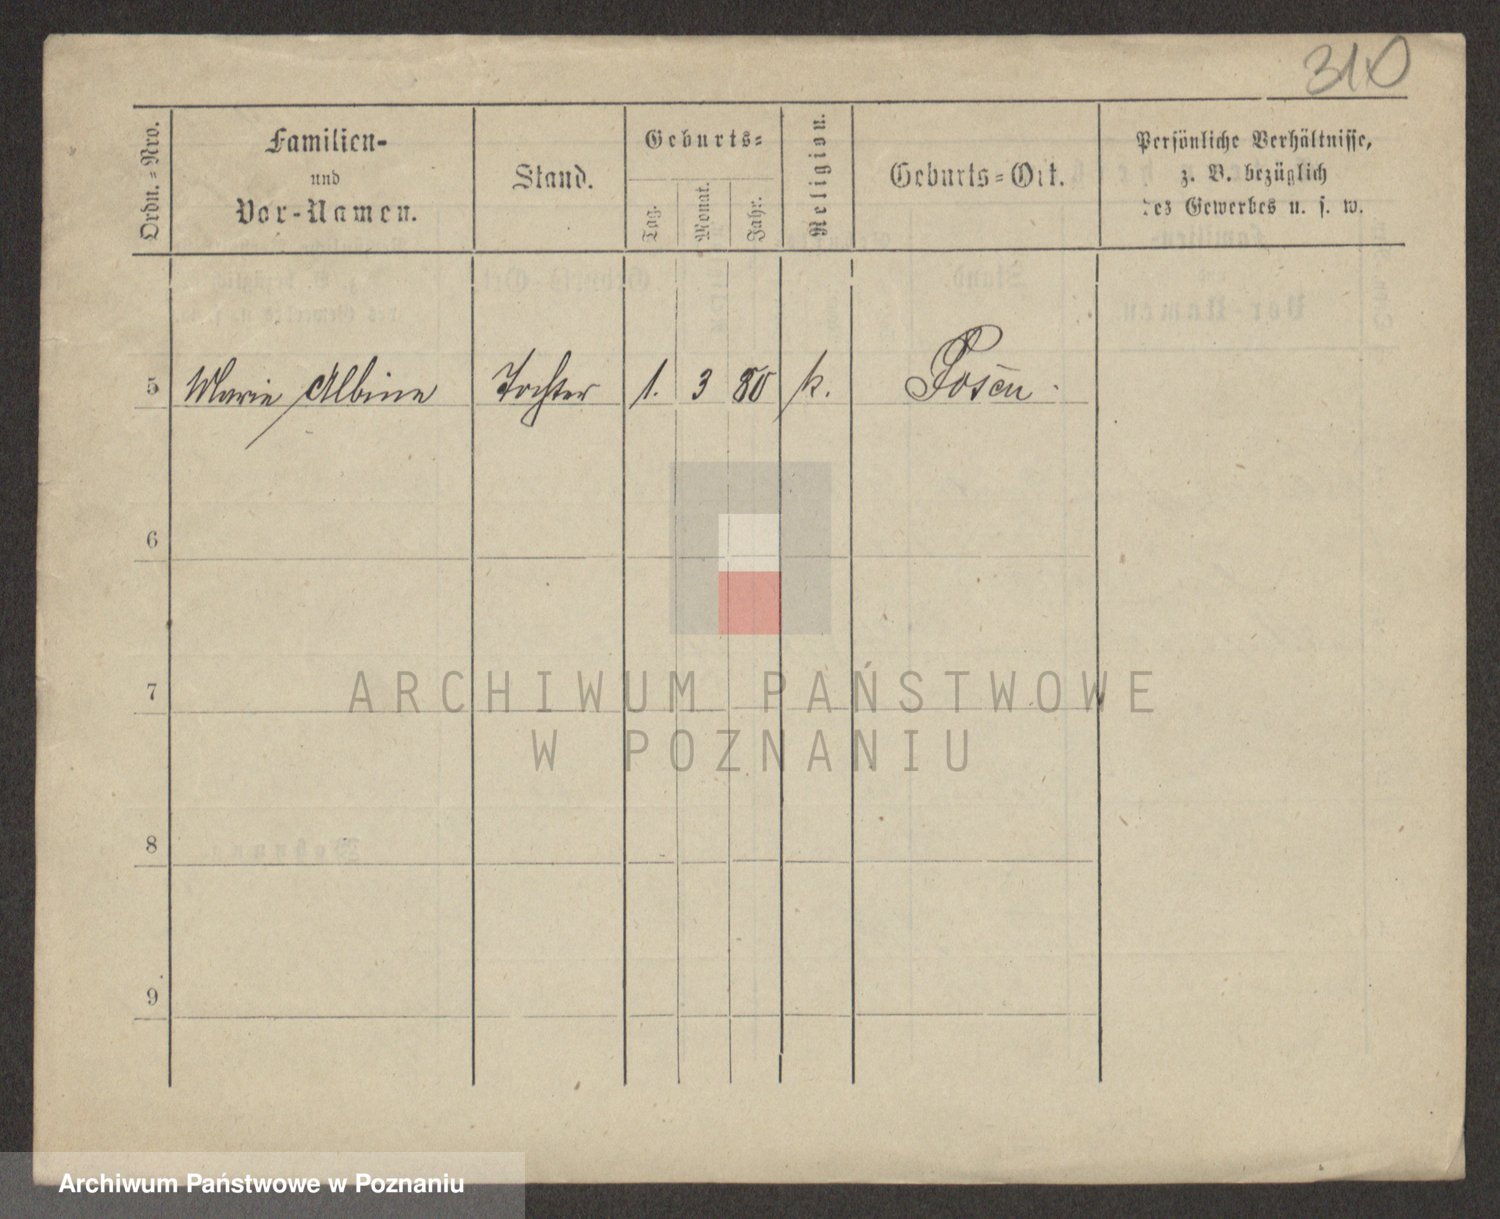 310
Ordn.-Nro.
Familien-
und
Vor-Namen.
Stand.
Geburts-
Tag.
Monat.
Jahr.
Religion.
Geburts-Ort.
Persönliche Verhältnisse,
z. B. bezüglich
des Gewerbes u. s. w.
5 Marie Albine Tochter 1. 3 80 k. Posen.
6
7
8
9
ARCHIWUM PAŃSTWOWE
W POZNANIU
Archiwum Państwowe w Poznaniu